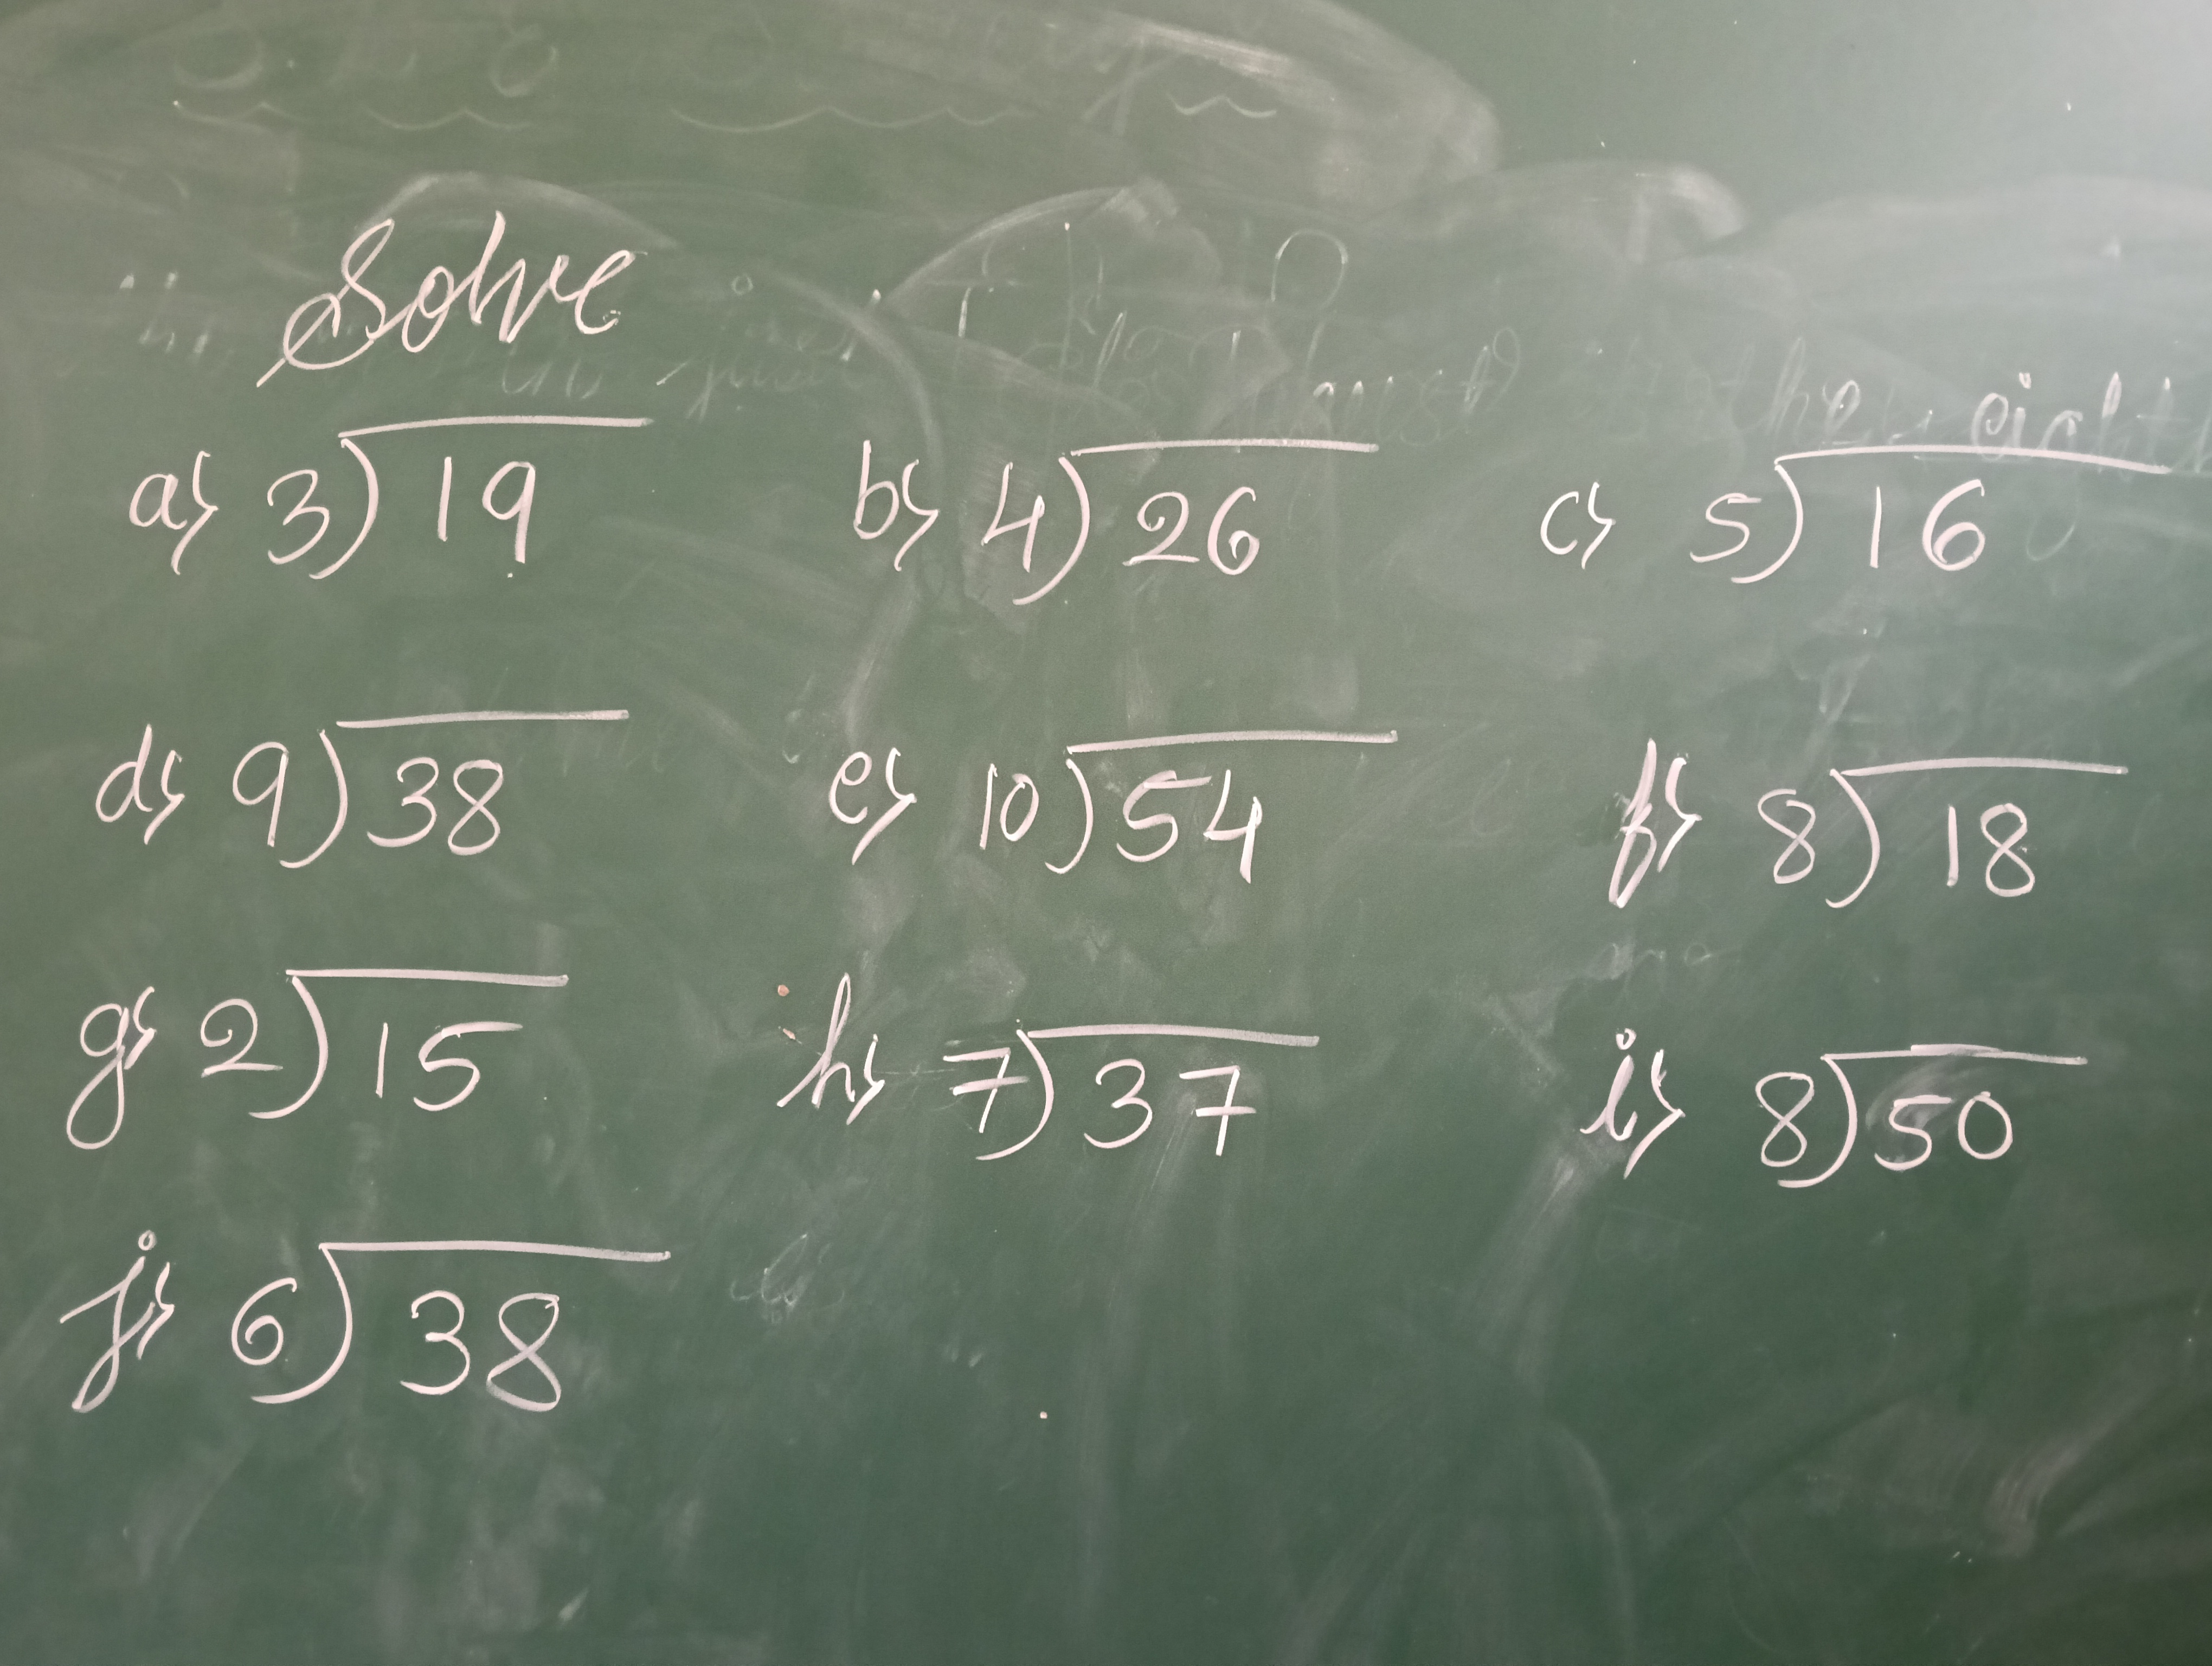 Solve
a) 3)19 b) 4)26 c) 5)16
d) 9)38 e) 10)54 f) 8)18
g) 2)15 h) 7)37 i) 8)50
j) 6)38